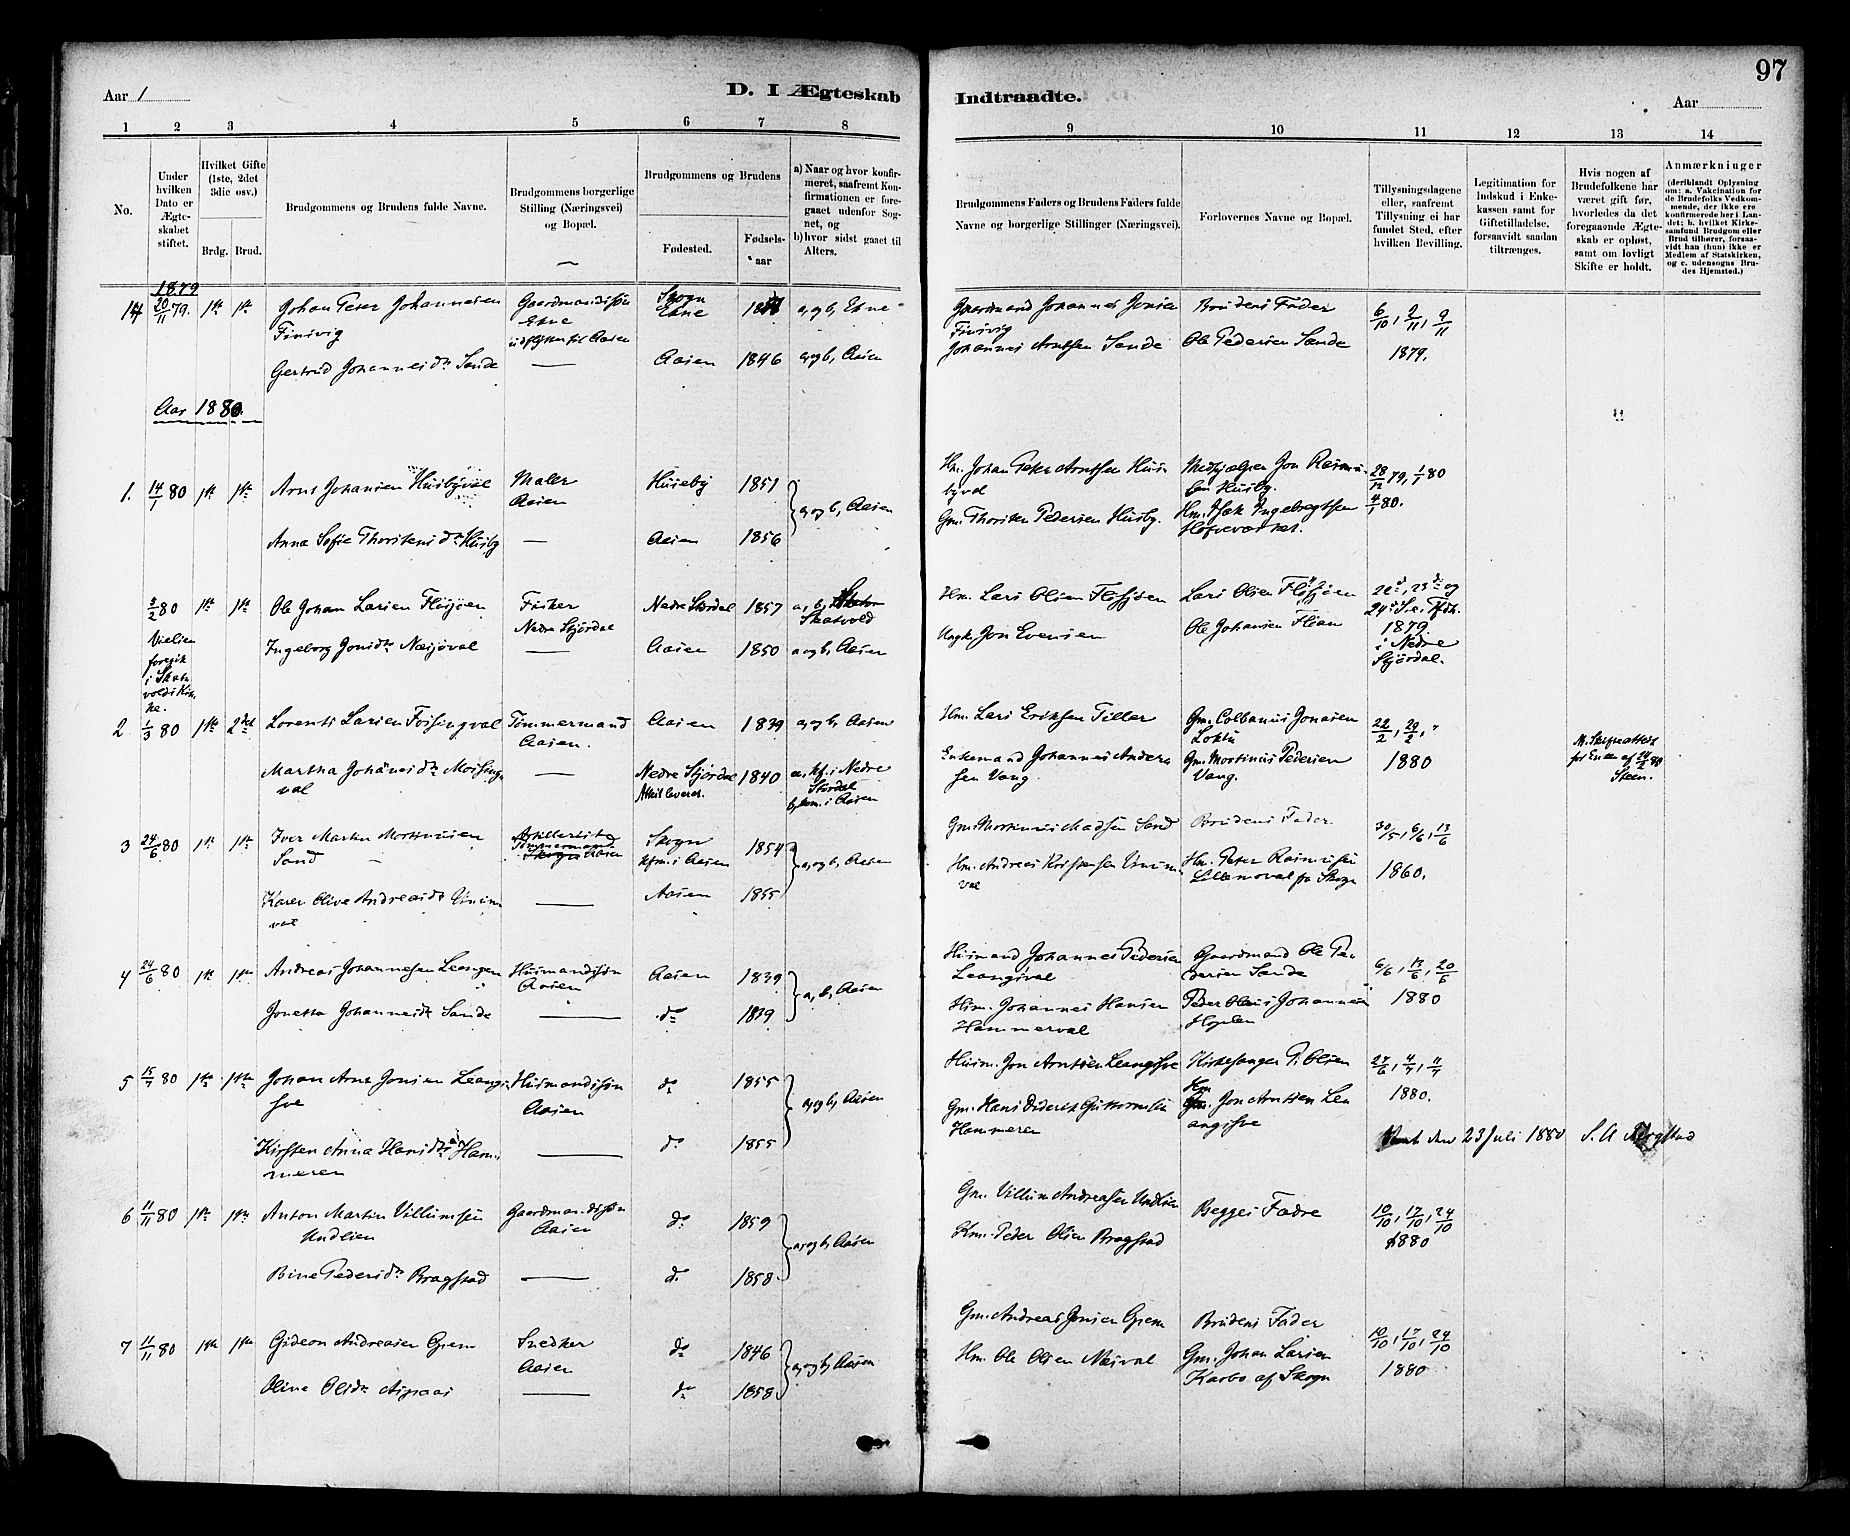 97
Aar 1
D. I Ægteskab Indtraadte.
Aar
1 2 3 4 5 6 7 8 9 10 11 12 13 14
No.
Under hvilken Dato er Ægteskabet stiftet.
Hvilket Gifte (1ste, 2det 3die osv.)
Brdg. Brud.
Brudgommens og Brudens fulde Navne.
Brudgommens borgerlige Stilling (Næringsvei) og Bopæl.
Brudgommens og Brudens
Fødested.
Fødsels-aar
a) Naar og hvor konfirmeret, saafremt Konfirmationen er foregaaet udenfor Sognet, og
b) hvor sidst gaaet til Alters.
Brudgommens Faders og Brudens Faders fulde Navne og borgerlige Stillinger (Næringsvei).
Forlovernes Navne og Bopæl.
Tillysningsdagene eller, saafremt Tillysning ei har fundet Sted, efter hvilken Bevilling.
Legitimation for Indskud i Enkekassen samt for Giftetilladelse, forsaavidt saadan tiltrænges.
Hvis nogen af Brudefolkene har været gift før, hvorledes da det foregaaende Ægteskab er opløst, samt om lovligt Skifte er holdt.
Anmærkninger
(deriblandt Oplysning om: a. Vakcination for de Brudefolks Vedkommende, der ikke ere konfirmerede her i Landet; b. hvilket Kirkesamfund Brudgom eller Brud tilhører, forsaavidt han (hun) ikke er Medlem af Statskirken, og c. udensogns Brudes Hjemsted.)
1879
14 20/11 79. 1ste 1ste Johan Peter Johannesen Finsvig Gaardmandssøn Ekne udflytter til Aasen Skogn Ekne a, og b, Ekne Gaardmand Johannes Jonsen Finsvig Brudens Fader 6/10, 2/11, 9/11
Gertrud Johannesdtr Sande — Aasen 1846 a, og b, Aasen Johannes Arntsen Sande Ole Pedersen Sande 1879.
Aar 1880.
1. 14/1 80 1ste 1ste Arnt Johansen Husbyval Maler Aasen Huseby 1851 a, og b, Aasen Hm. Johan Peter Arntsen Husbyval Medhjælper Jon Rasmussen Husby. 28/12 79, 1/1 80
Anna Sofie Thorstensdtr Husby — Aasen 1856 Gm. Thorsten Pedersen Husby. Hm. Isak Ingebregtsen 4/1 80.
2/2 80 1ste 1ste Ole Johan Larsen Flosjøen Fisker Nedre Stjørdal Nedre Stjørdal 1857 a, b, Skatvold Hm. Lars Olsen Flosjøen Lars Olsen Flosjøen 22d, 23de og 24d S. e. Tfdh. 1879 i Nedre Stjørdal.
Vielsen foregik i Skatvolds Kirke. Ingeborg Jonsdtr Næsjøval — Aasen 1850 a og b, Aasen Ungk. Jon Evensen Ole Johansen Floan
2 1/3 80 1ste 2det Lorents Larsen Fossingval Tømmermand Aasen. Aasen 1839 a, og b, Aasen Hm. Lars Eriksen Tiller Gm. Colbanus Jonasen Loktu 22/2, 29/2, "
Martha Johansdtr Mossingval — Nedre Stjørdal Attest leveret. 1840 a, kf. i Nedre Stjørdal b, kom. i Aasen Enkemand Johannes Andersen Vang. Gm. Mortinus Pedersen Vang. 1880 M. Skifteattest for Enken af 24/2 80 Steen.
3 24/6 80 1ste 1ste Iver Martin Mortinusen Sand Artillerist Tømmermand Skogn Aasen Skogn kfm. i Aasen 1854 a, og b, Aasen Gm. Mortinus Madsen Sand Brudens Fader 30/5, 6/6, 13/6
Karen Olive Andreasdtr — Aasen 1855 Hm. Andreas Hm. Peter Rasmusen Lillemoval fra Skogn 1860.
4 24/6 80 1ste 1ste Andreas Johannesen Leangen Husmandssøn Aasen Aasen 1839 a, b, Aasen Husmand Johannes Pedersen Leangsval Gaardmand Ole Pedersen Sande 6/6, 13/6, 20/6
Jonetta Johannesdtr Sande — do 1839 Husm. Johannes Hansen Hammerval Peder Johannesen Hoplen 1880
5 15/7 80 1ste 1ste Johan Arnt Jonsen Leangshve Husmandssøn Aasen do 1855 a, og b, Aasen Husm. Jon Arntsen Leangshve Kirkesanger P. Olsen 27/6, 4/7, 11/7
Kirsten Anna Hansdtr Hammeren — do 1855 Gm. Hans Diderik Guttormsen Hammeren Hm Gm. Jon Arntsen Leangshve 1880.
den 23 Juli 1880 S. A Bergstad
6 11/11 80 1ste 1ste Anton Martin Villumsen Undlien Gaardmandssøn Aasen do 1859 a, og b, Aasen Gm. Villum Andreasen Undlien Begges Fædre 10/10, 17/10, 24/10 1880
Bine Pedersdtr Bragstad — do 1858 Hm. Peder Olsen Bragstad
7 11/11 80 1ste 1ste Gideon Andreasen Grem Snedker Aasen do 1846 a, og b, Aasen Gm. Andreas Jonsen Grem Brudens Fader 10/10, 17/10, 24/10
Oline Olsdtr Aspaas — do 1858 Hm. Ole Olsen Næsval Gm. Johan Larsen Karbo af Skogn 1880